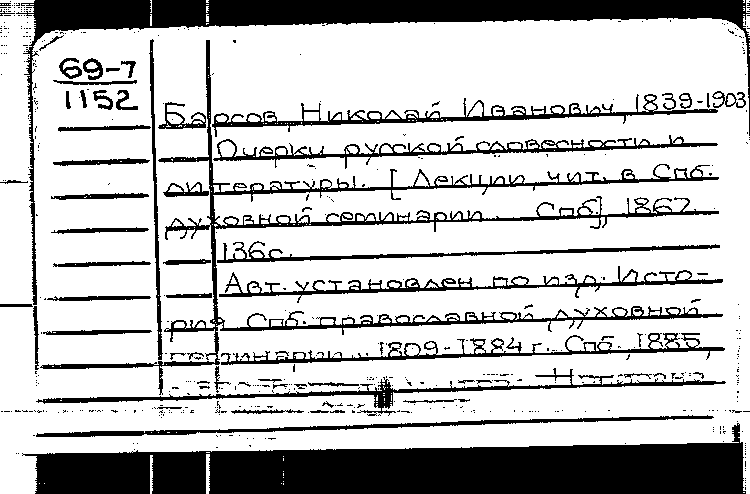 69-7
1152
Барсов, Николай Иванович, 1839-1903
Очерки русской словесности и
литературы. [Лекции, чит. в Спб.
духовной семинарии. Спб], 1867.
136с.
Авт. установлен по изд: Исто-
рия Спб. православной духовной
семинарии .. 1809-1884 г. Спб., 1885,